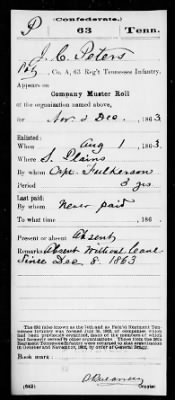 (Confederate.)
P 63 Tenn.
J. C. Peters
Pvt, Co. A, 63 Reg't Tennessee Infantry.
Appears on
Company Muster Roll
of the organization named above,
for Nov & Dec, 1863.
Enlisted:
When Aug 1, 1863.
Where S. Plains
By whom Capt. Fulkerson
Period 3 yrs
Last paid:
By whom Never paid
To what time , 186 .
Present or absent Absent
Remarks: Absent without leave
Since Dec 8. 1863
Book mark:
(642) Copyist.